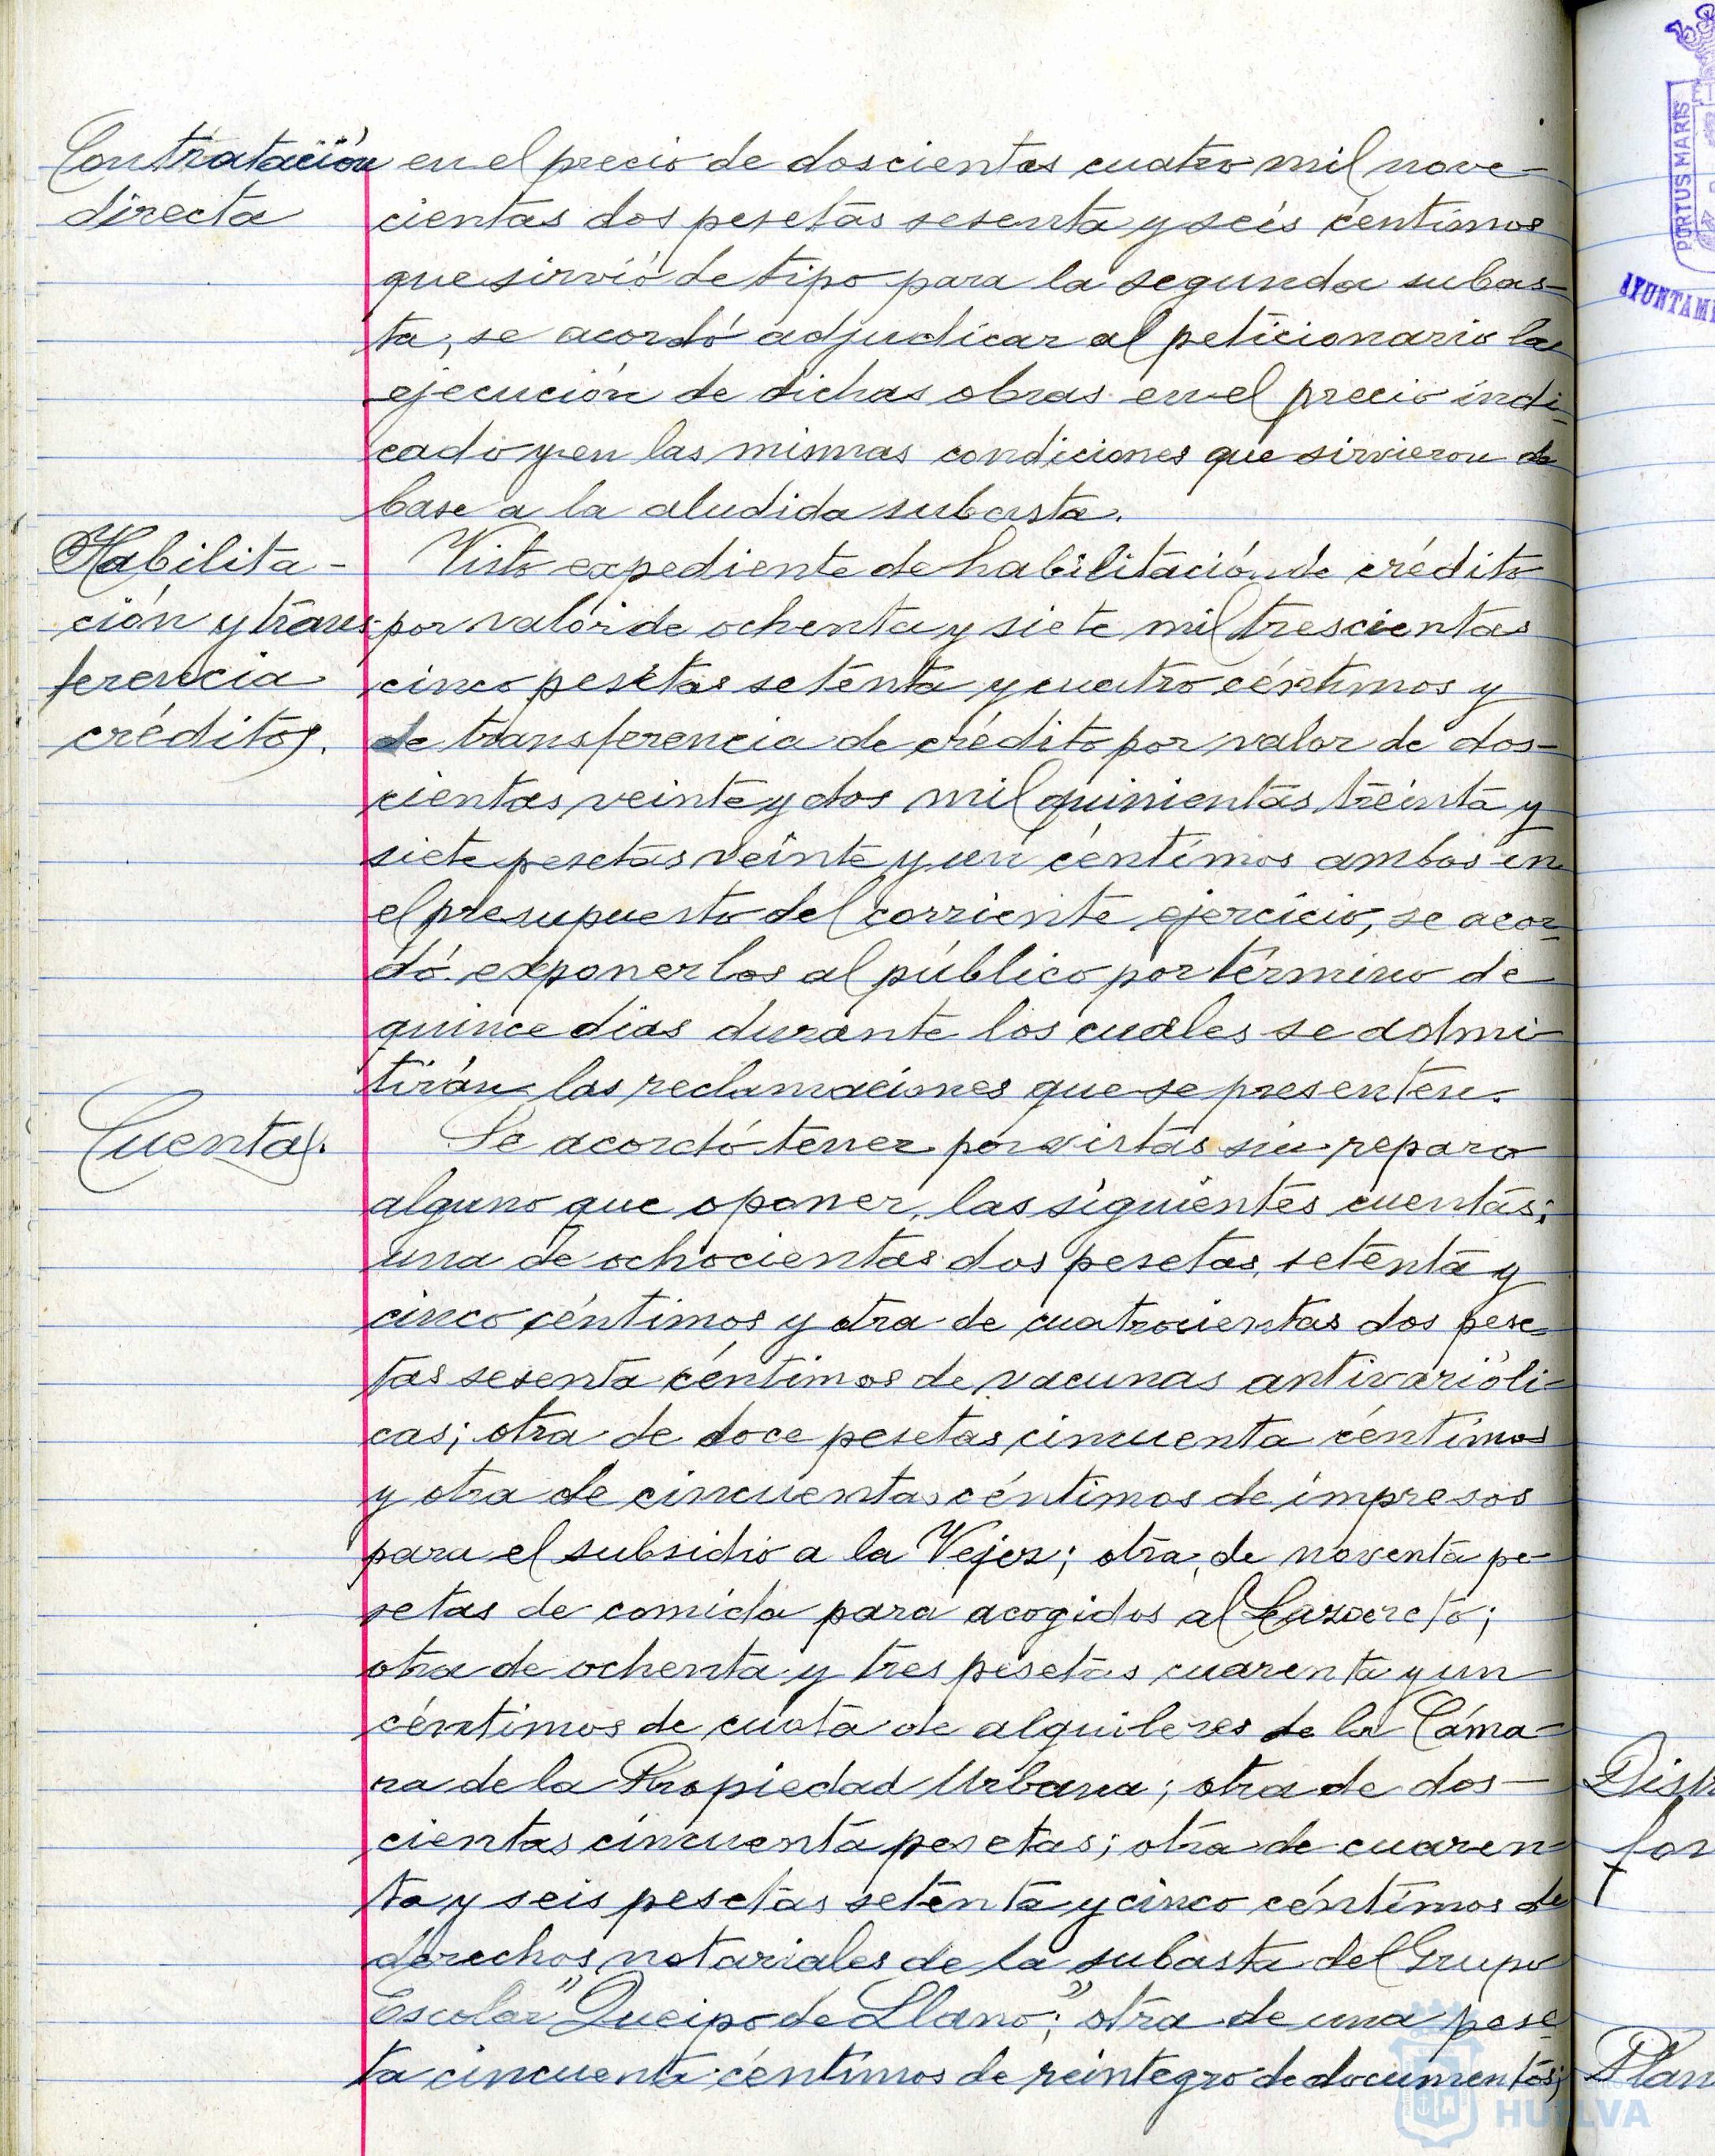 Contratación
directa
en el precio de doscientas cuatro mil nove-
cientas dos pesetas sesenta y seis céntimos
que sirvió de tipo para la segunda subas-
ta, se acordó adjudicar al peticionario la
ejecución de dichas obras en el precio indi-
cado y en las mismas condiciones que sirvieron de
base a la aludida subasta.
Habilita-
ción y trans
ferencia
créditos.
Visto expediente de habilitación de crédito
por valor de ochenta y siete mil trescientas
cinco pesetas setenta y cuatro céntimos y
de transferencia de crédito por valor de dos-
cientas veinte y dos mil quinientas treinta y
siete pesetas veinte y un céntimos ambos en
el presupuesto del corriente ejercicio, se acor-
dó exponerlos al público por término de
quince dias durante los cuales se admi-
tirán las reclamaciones que se presenten.
Cuentas.
Se acordó tener por vistas sin reparo
alguno que oponer, las siguientes cuentas;
una de ochocientas dos pesetas, setenta y
cinco céntimos y otra de cuatrocientas dos pese-
tas sesenta céntimos de vacunas antivarióli-
cas; otra de doce pesetas cincuenta céntimos
y otra de cincuenta céntimos de impresos
para el subsidio a la Vejez; otra de noventa pe-
setas de comida para acogidos al Lazareto;
otra de ochenta y tres pesetas cuarenta y un
céntimos de cuota de alquileres de la Cáma-
ra de la Propiedad Urbana; otra de dos-
cientas cincuenta pesetas; otra de cuaren-
ta y seis pesetas setenta y cinco céntimos de
derechos notariales de la subasta del Grupo
Escolar "Queipo de Llano"; otra de una pese-
ta cincuenta céntimos de reintegro de documentos;
PORTUS MARIS
AYUNTAMI
Distr
for
Plan
HUELVA